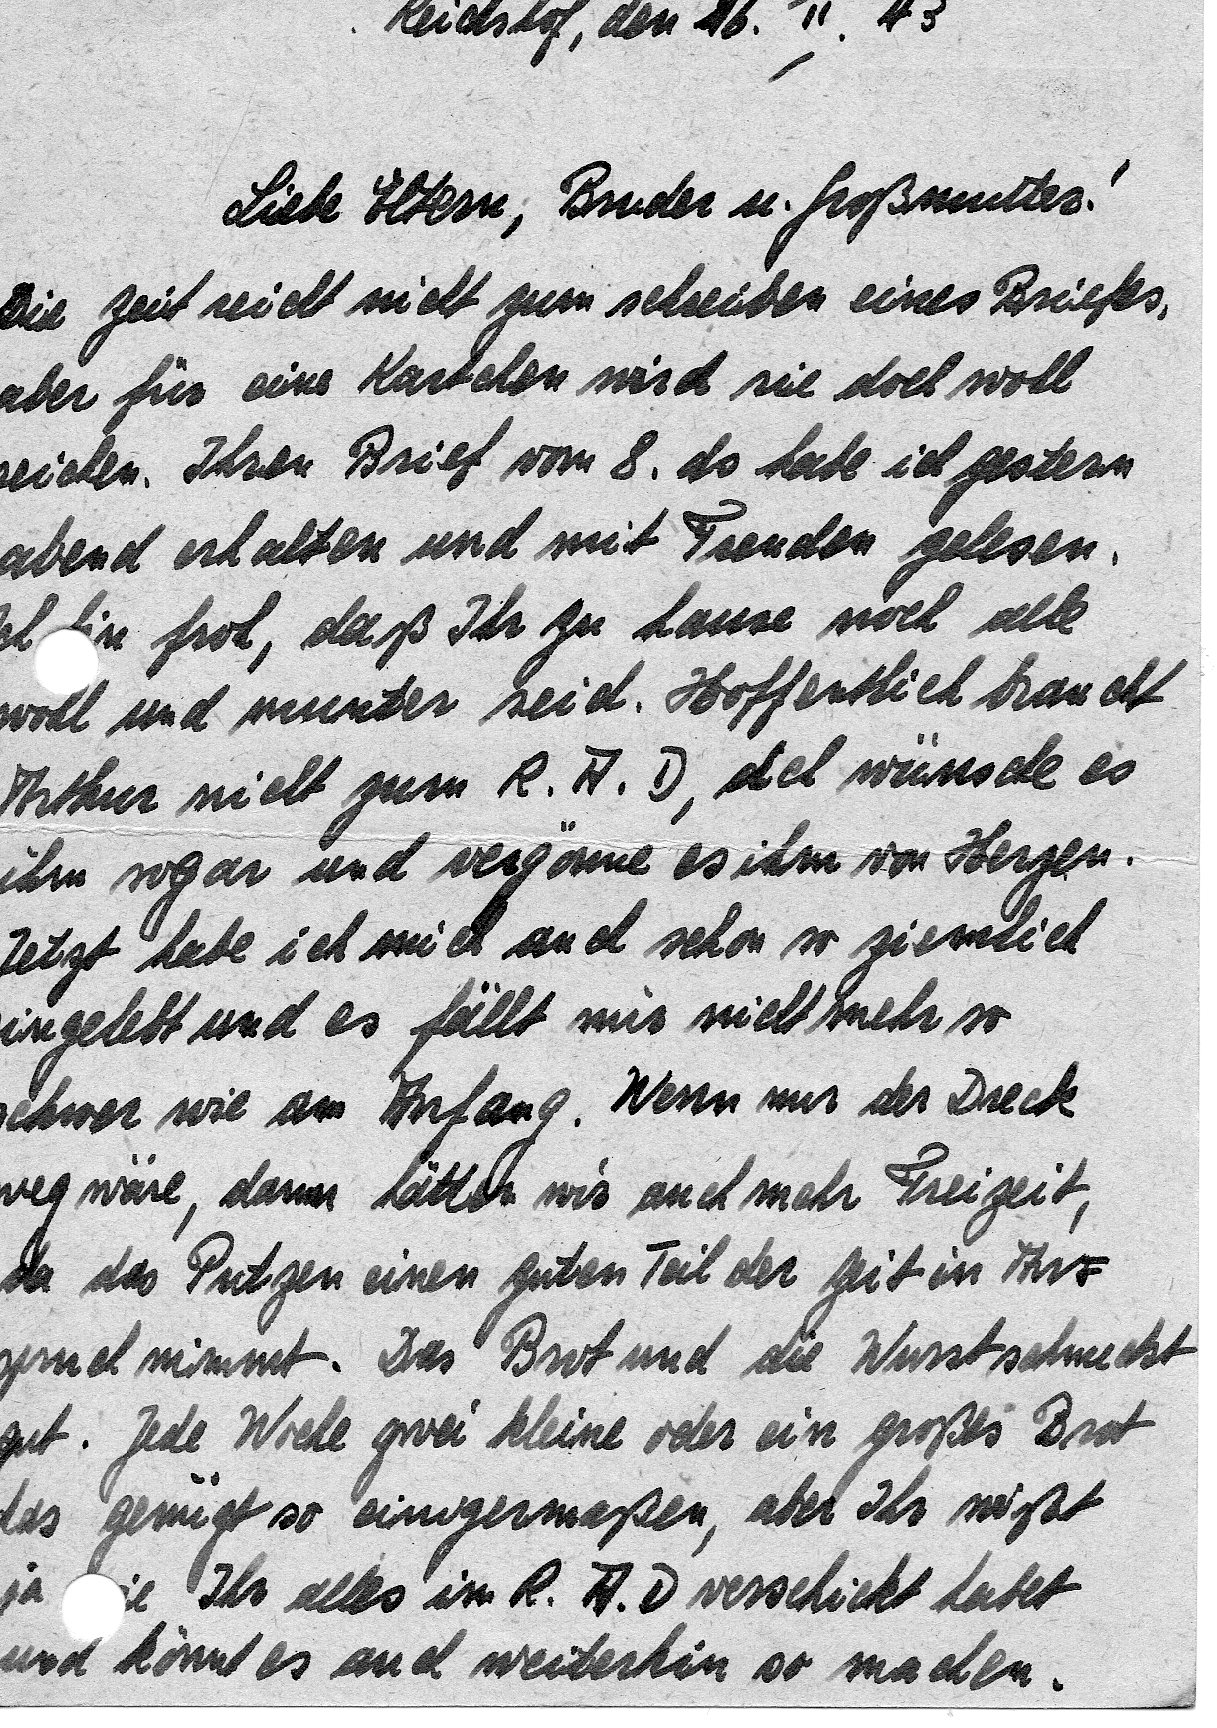 Reichshof, den 16. II. 43
Liebe Eltern, Bruder u. Großmutter!
Die Zeit reicht nicht zum schreiben eines Briefes,
aber für eine Kartchen wird sie doch wohl
reichen. Ihren Brief vom 8. ds habe ich gestern
abend erhalten und mit Freuden gelesen.
Ich bin froh, daß Ihr zu hause noch alle
wohl und munter seid. Hoffentlich braucht
Arthur nicht zum R. A. D, ich wünsche es
ihm sogar und vergönne es ihm von Herzen.
Jetzt habe ich mich auch schon so ziemlich
eingelebt und es fällt mir nicht mehr so
schwer wie am Anfang. Wenn nur der Dreck
weg wäre, dann hätten wir auch mehr Freizeit,
da das Putzen einen guten Teil der Zeit in An=
spruch nimmt. Das Brot und die Wurst schmeckt
gut. Jede Woche zwei kleine oder ein großes Brot
das genügt so einigermaßen, aber Ihr wißt
ja wie Ihr alles im R. A. D verschickt habet
und könnt es auch weiterhin so machen.